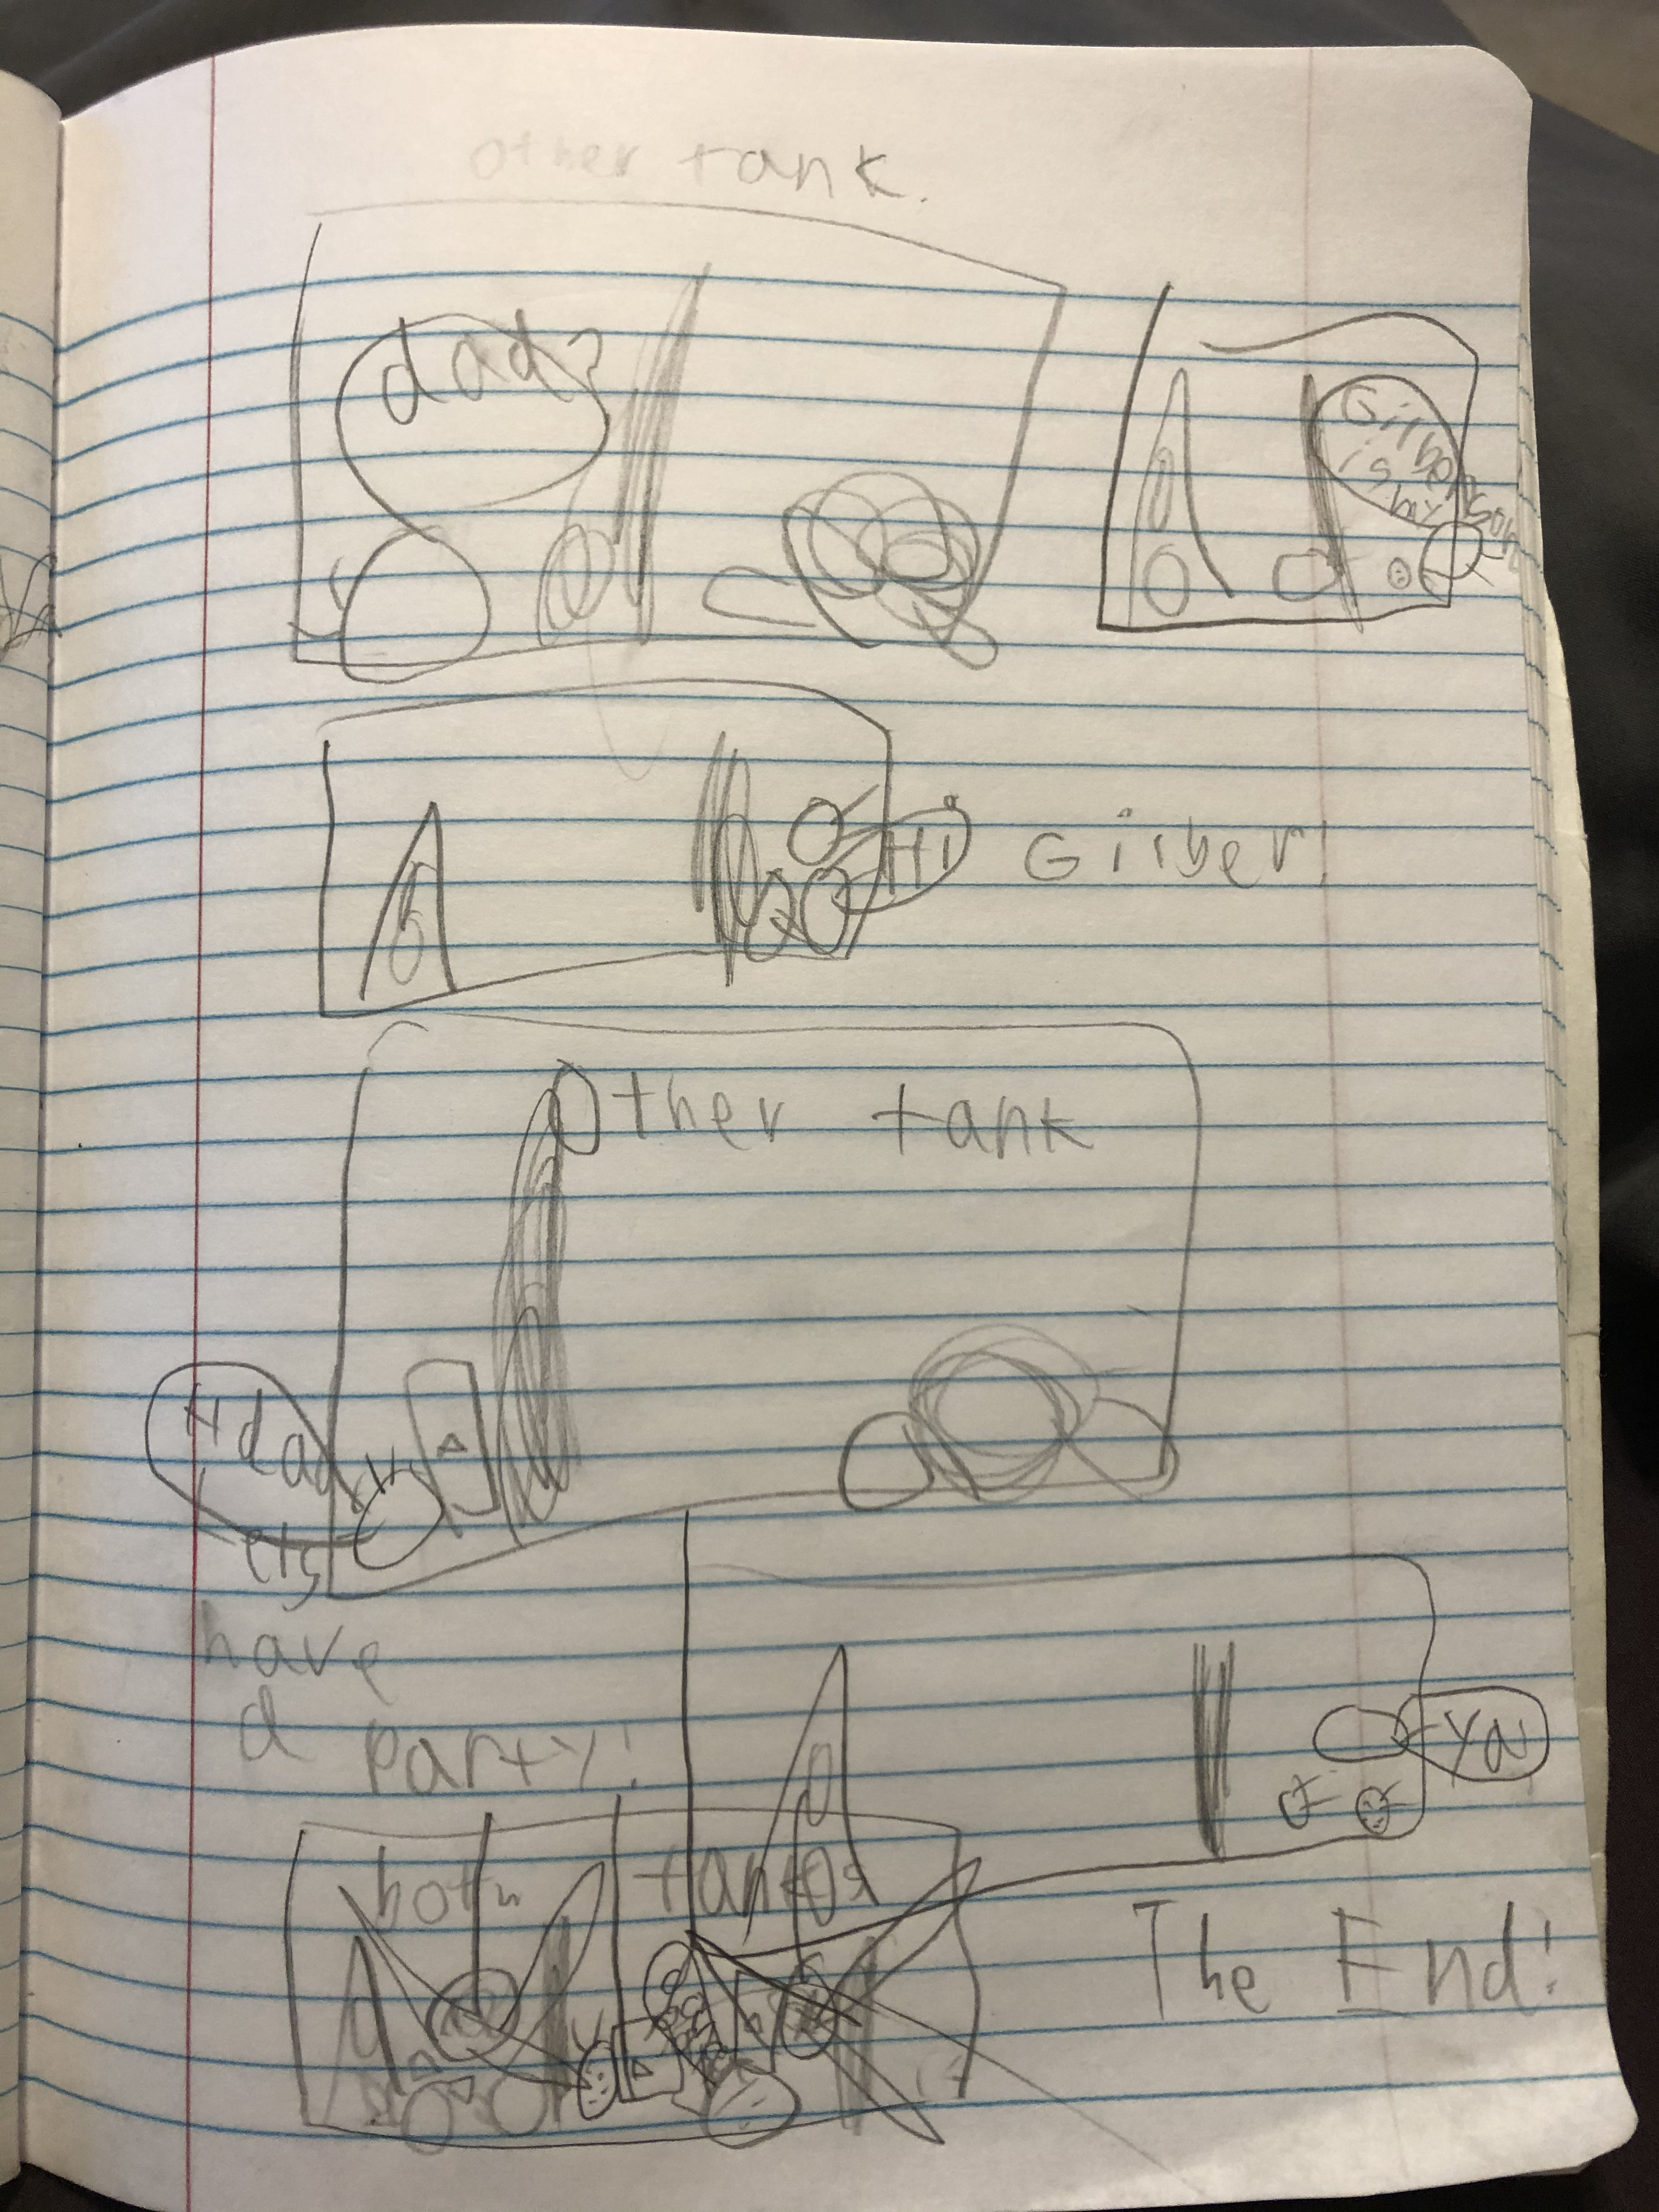 other tank.
dad?
Gilber
is my son
Hi Gilber!
Other tank
Hi dad
lets
have
a party!
Ya
both tanks
The End!